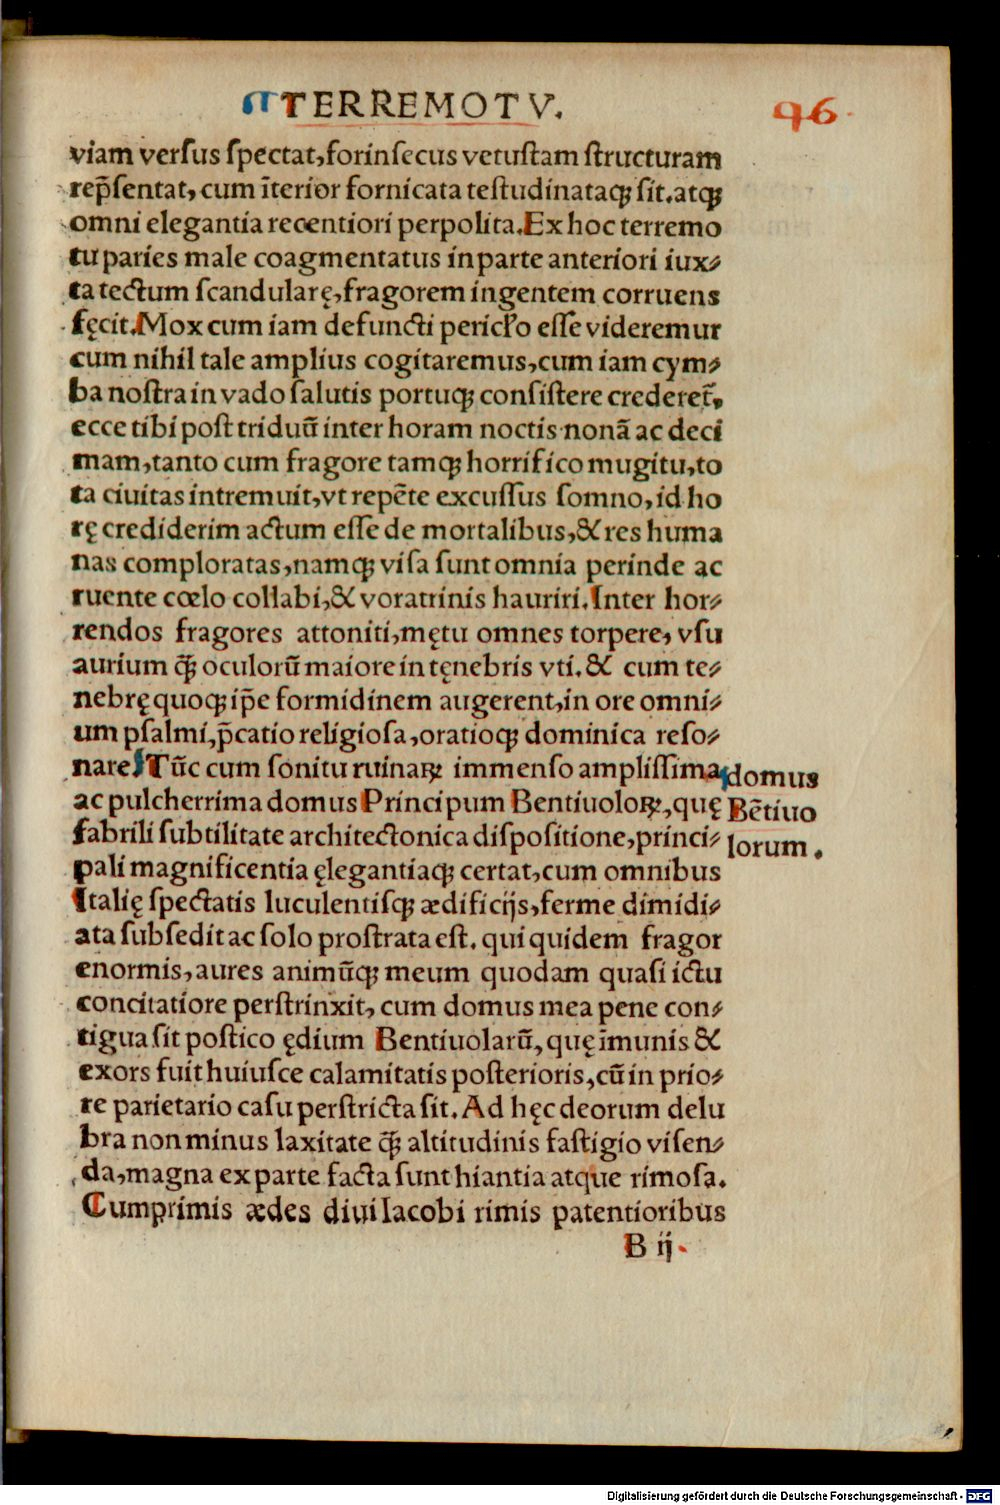 TERREMOTV.
96
viam versus spectat, forinsecus vetustam structuram
rep̃sentat, cum īterior fornicata testudinataq; sit. atq;
omni elegantia recentiori perpolita. Ex hoc terremo
tu paries male coagmentatus in parte anteriori iux⸗
ta tectum scandularę, fragorem ingentem corruens
fęcit. Mox cum iam defuncti pericl̃o esse videremur
cum nihil tale amplius cogitaremus, cum iam cym⸗
ba nostra in vado salutis portuq; consistere crederet̃,
ecce tibi post triduū inter horam noctis nonā ac deci
mam, tanto cum fragore tamq; horrifico mugitu, to
ta ciuitas intremuit, vt repēte excussus somno, id ho
rę crediderim actum esse de mortalibus, & res huma
nas comploratas, namq; visa sunt omnia perinde ac
ruente cœlo collabi, & voratrinis hauriri. Inter hor⸗
rendos fragores attoniti, mętu omnes torpere, vsu
aurium q̃; oculorū maiore in tęnebris vti. & cum te⸗
nebrę quoq; ip̃e formidinem augerent, in ore omni⸗
um psalmi, p̃catio religiosa, oratioq; dominica reso⸗
nare. Tūc cum sonitu ruinaꝝ immenso amplissima
ac pulcherrima domus Principum Bentiuoloꝝ, quę
fabrili subtilitate architectonica dispositione, princi⸗
pali magnificentia ęlegantiaq; certat, cum omnibus
Italię spectatis luculentisq; ædificijs, ferme dimidi⸗
ata subsedit ac solo prostrata est. qui quidem fragor
enormis, aures animūq; meum quodam quasi ictu
concitatiore perstrinxit, cum domus mea pene con⸗
tigua sit postico ędium Bentiuolarū, quę īmunis &
exors fuit huiusce calamitatis posterioris, cū in prio⸗
re parietario casu perstricta sit. Ad hęc deorum delu
bra non minus laxitate q̃; altitudinis fastigio visen⸗
da, magna ex parte facta sunt hiantia atque rimosa.
Cumprimis ædes diui Iacobi rimis patentioribus
B ij
domus
Bētiuo
lorum.
Digitalisierung gefördert durch die Deutsche Forschungsgemeinschaft - DFG